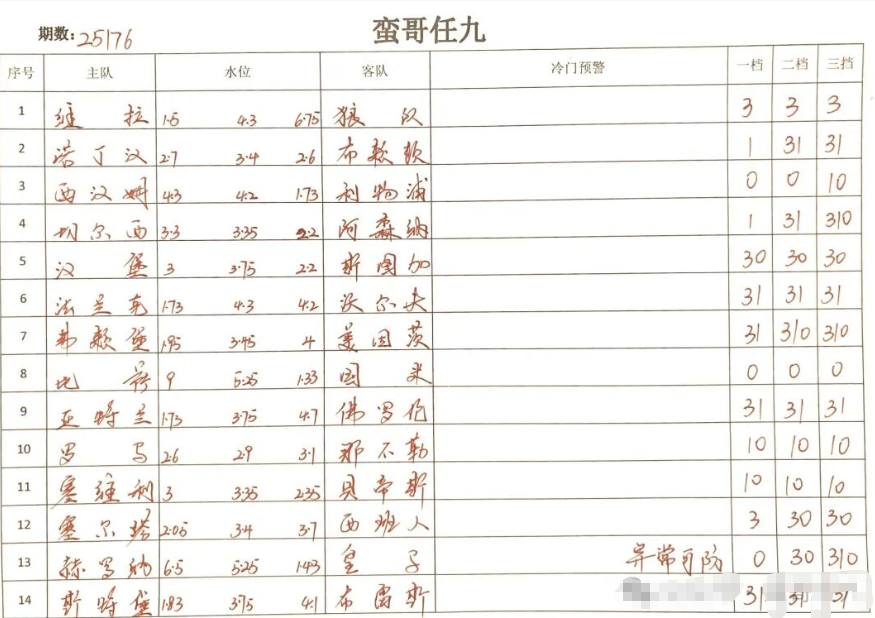 期数: 25176 蛮哥任九
序号 主队 水位 客队 冷门预警 一档 二档 三挡
1 维拉 1.5 4.3 6.75 狼队 3 3 3
2 诺丁汉 2.7 3.4 2.6 布赖顿 1 31 31
3 西汉姆 4.3 4.2 1.73 利物浦 0 0 10
4 切尔西 3.3 3.35 2.2 阿森纳 1 31 310
5 汉堡 3 3.75 2.2 斯图加 30 30 30
6 法兰克 1.73 4.3 4.2 沃尔夫 31 31 31
7 弗赖堡 1.95 3.45 4 美因茨 31 310 310
8 比萨 9 5.25 1.33 国米 0 0 0
9 亚特兰 1.73 3.75 4.7 佛罗伦 31 31 31
10 罗马 2.6 2.9 3.1 那不勒 10 10 10
11 塞维利 3 3.35 2.35 贝帝斯 10 10 10
12 塞尔塔 2.05 3.4 3.7 西班人 3 30 30
13 赫罗纳 6.5 5.25 1.43 皇马 异常可防 0 30 310
14 斯特堡 1.83 3.75 4.1 布雷斯 31 31 31